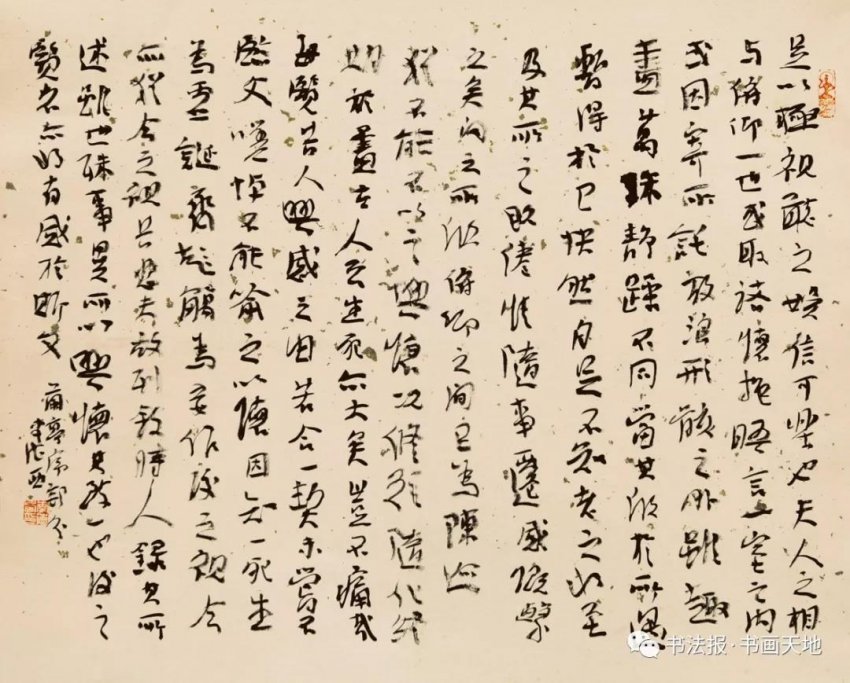 足以極視聽之娛信可樂也夫人之相
与俯仰一世或取諸懷抱晤言一室之內
或因寄所託放浪形骸之外雖趣
舍萬殊靜躁不同當其欣於所遇
暫得於己快然自足不知老之將至
及其所之既倦情隨事遷感慨繫
之矣向之所欣俛仰之間已為陳迹
猶不能不以之興懷況修短隨化終
期於盡古人云生死亦大矣豈不痛哉
每覽昔人興感之由若合一契未嘗不
臨文嗟悼不能喻之於懷固知一死生
為虛誕齊彭殤為妄作後之視今
亦猶今之視昔悲夫故列敘時人錄其所
述雖世殊事異所以興懷其致一也後之
覽者亦將有感於斯文
蘭亭序部分
书法报·书画天地